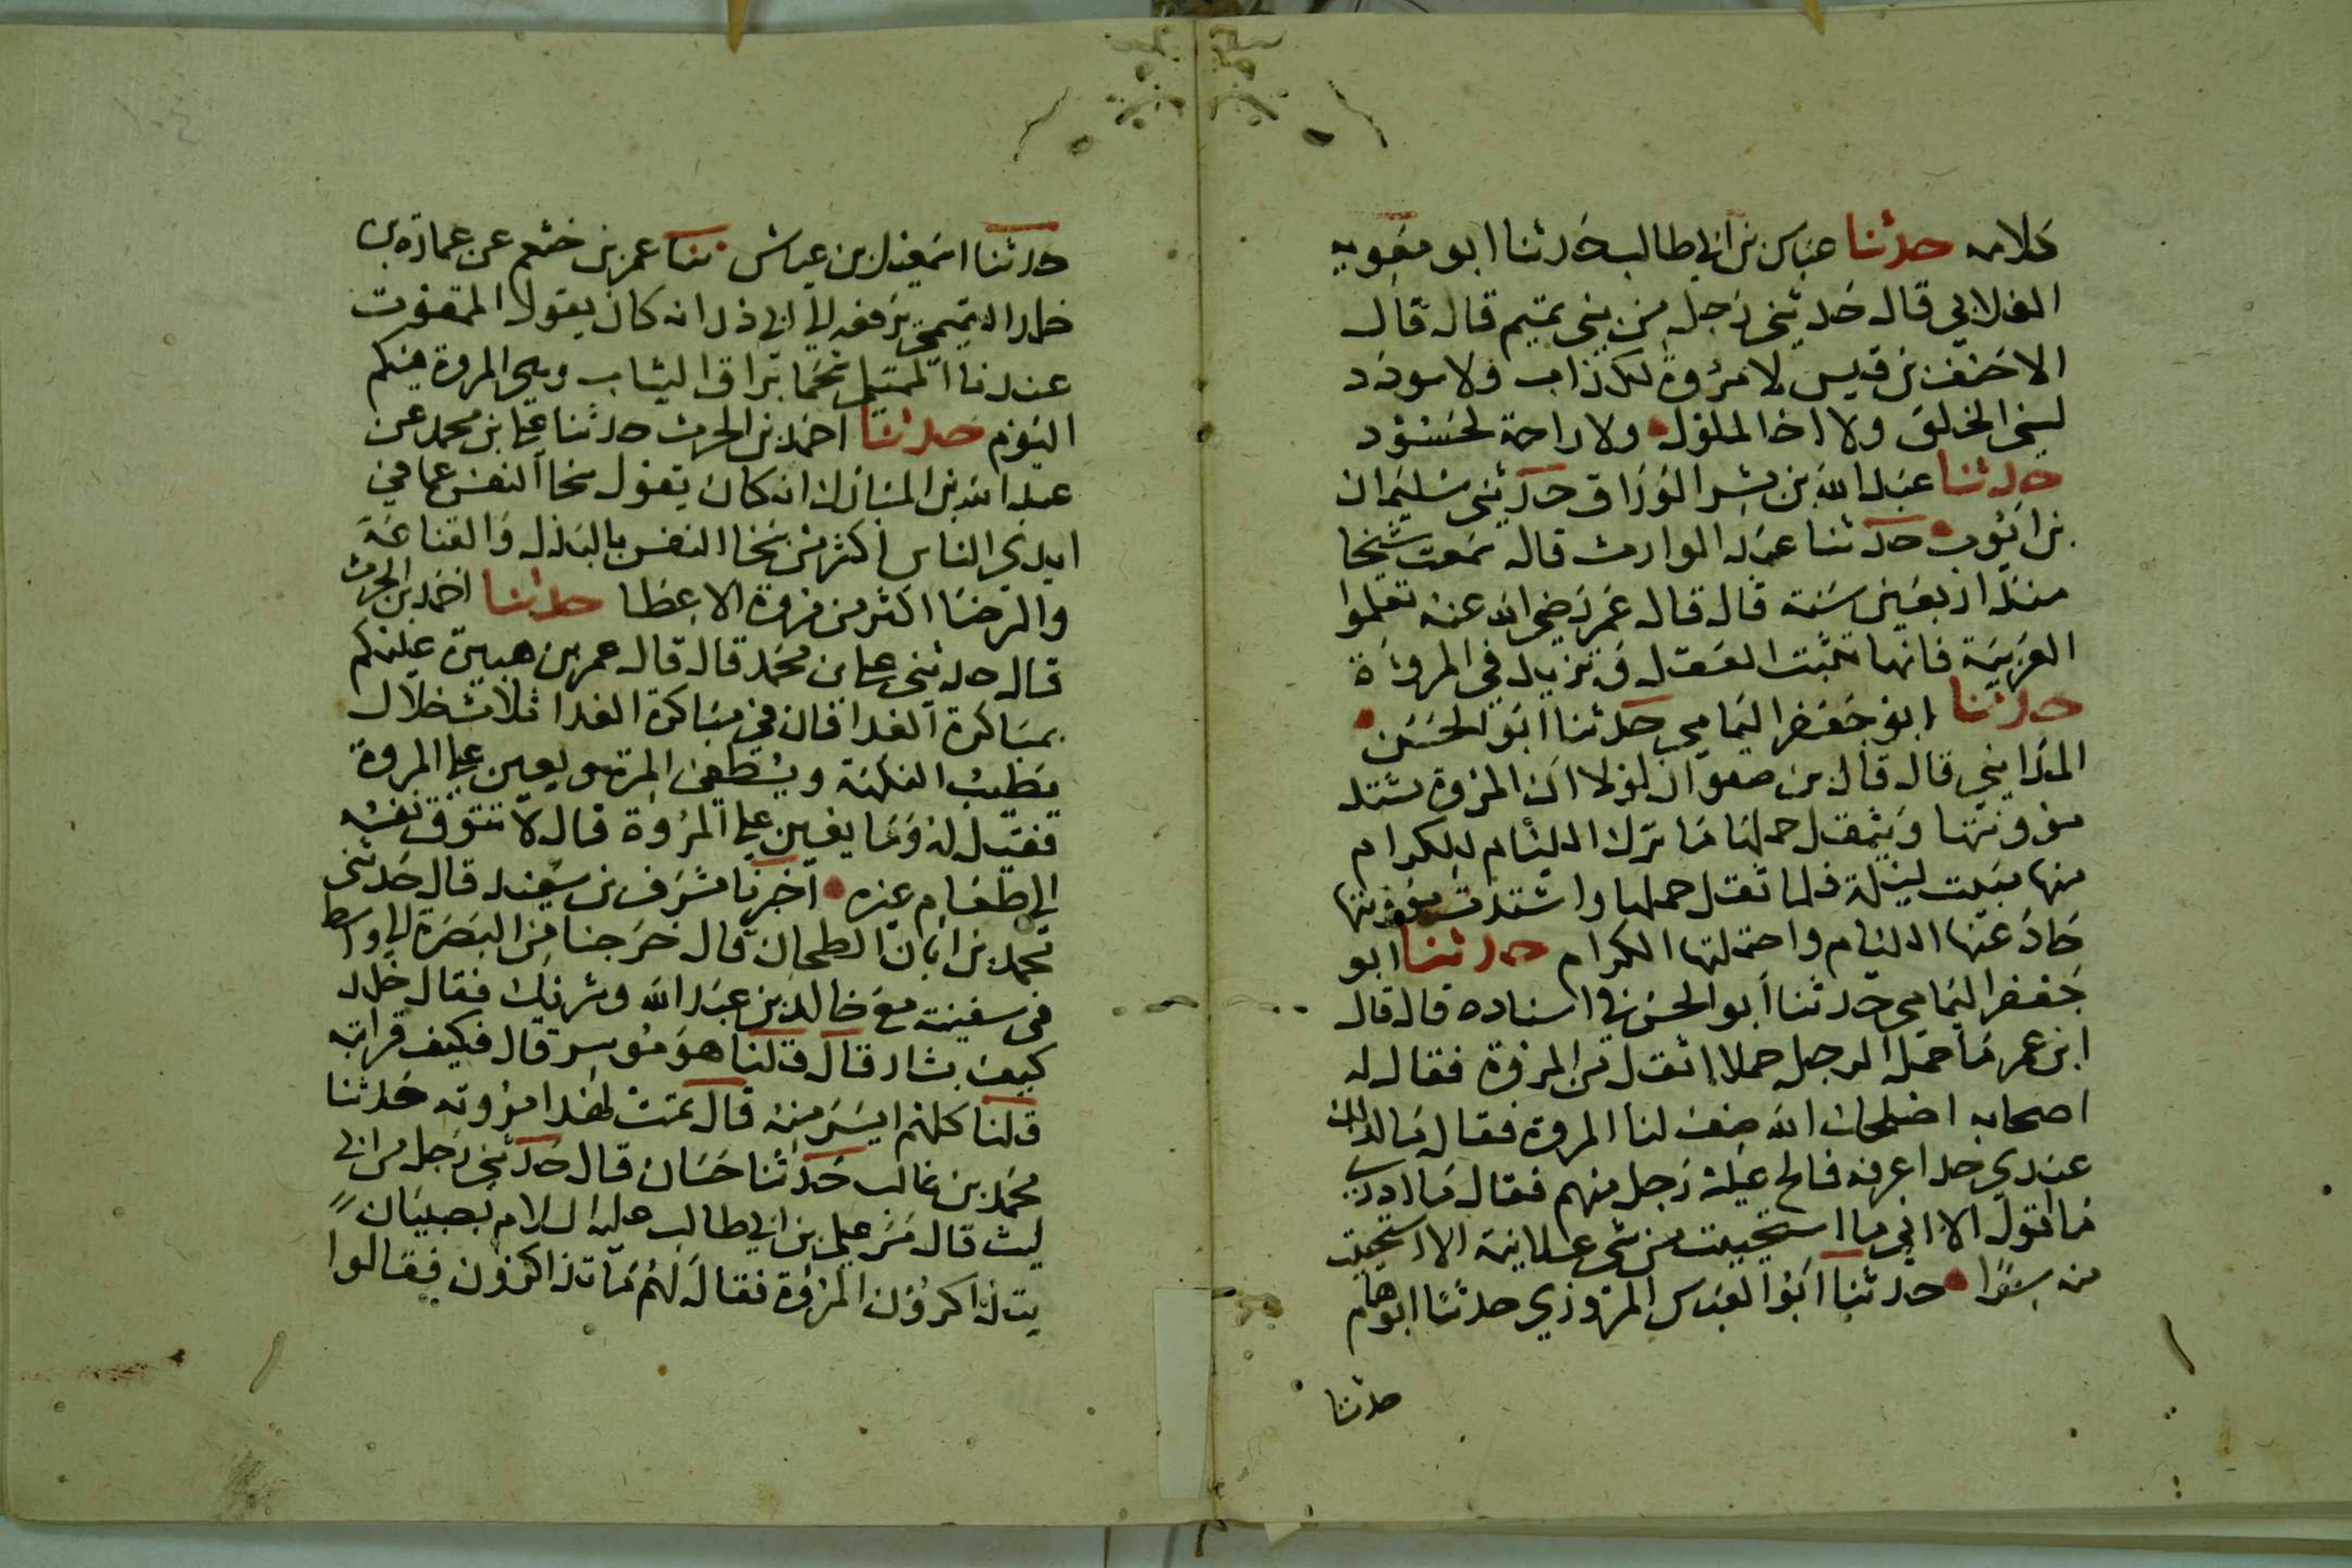 كلامه حدثنا عباس بن ابي طالب حدثنا ابو معوية
الغلابي قال حدثني رجل من بني تميم قال قال
الاحنف بن قيس لا مروة لكذاب ولا سودد
لسيئ الخلق ولا اخا لملول ولا راحة لحسود
حدثنا عبد الله بن بشر الوراق حدثني سليمان
بن ايوب حدثنا عبد الوارث قال سمعت شيخا
منذ اربعين سنة قال قال عمر رضي الله عنه تعلموا
العربية فانها تثبت العقل وتزيد في المروءة
حدثنا ابو جعفر اليمامي حدثنا ابو الحسن
المدايني قال قال بن صفوان لولا ان المروة تشتد
موونتها ويثقل حملها ما ترك اللئام للكرام
منها مبيت ليلة فلما ثقل حملها واشتدت موونتها
حاد عنها اللئام واحتملها الكرام حدثنا ابو
جعفر اليمامي حدثنا ابو الحسن في اسناده قال قال
ابن عمر ما حمل الرجل حملا اثقل من المروة فقال له
اصحابه اصلحك الله صف لنا المروة فقال ما لذلك
عندي حد اعرفه فالح عليه رجل منهم فقال ما ادري
ما اقول الا اني ما استحييت من شي علانية الا استحييت
منه سرا حدثنا ابو العباس المروزي حدثنا ابو همام
حدثنا
حدثنا اسمعيل بن عياش ثنا عمر بن خثعم عن عمارة بن
خلد التميمي يرفعه الى ابي ذر انه كان يقول
عندنا براق الثياب وهي المروة فيكم
اليوم حدثنا احمد بن الحرث حدثنا علي بن محمد عن
عبد الله بن المبارك انه كان يقول سخا النفس عما في
ايدي الناس اكثر من سخا النفس بالبذل والقناعة
والرضا اكثر من مروة الاعطا حدثنا احمد بن الحرث
قال حدثني علي بن محمد قال قال عمر بن هبيرة عليكم
بمباكرة الغدا فان في مباكرة الغدا ثلاث خلال
يطيب النكهة ويطفئ المرة ويعين على المروة
فقيل له وما يعين على المروة قال لا تتوق نفسه
الى طعام غيره اخبرنا مشرف بن سعيد قال حدثني
محمد بن ابان الطحان قال خرجنا من البصرة الى واسط
في سفينة مع خالد بن عبد الله وشريك فقال خلد
كيف بشار قال قلنا هو موسر قال فكيف قرابته
قلنا كلهم ايسر منه قال تمت لهذا مروته حدثنا
محمد بن غالب حدثنا حسان قال حدثني رجل من ابي
ليث قال مر علي بن ابي طالب عليه السلام بصبيان
يتذاكرون المروة فقال لهم ما تذاكرون فقالوا